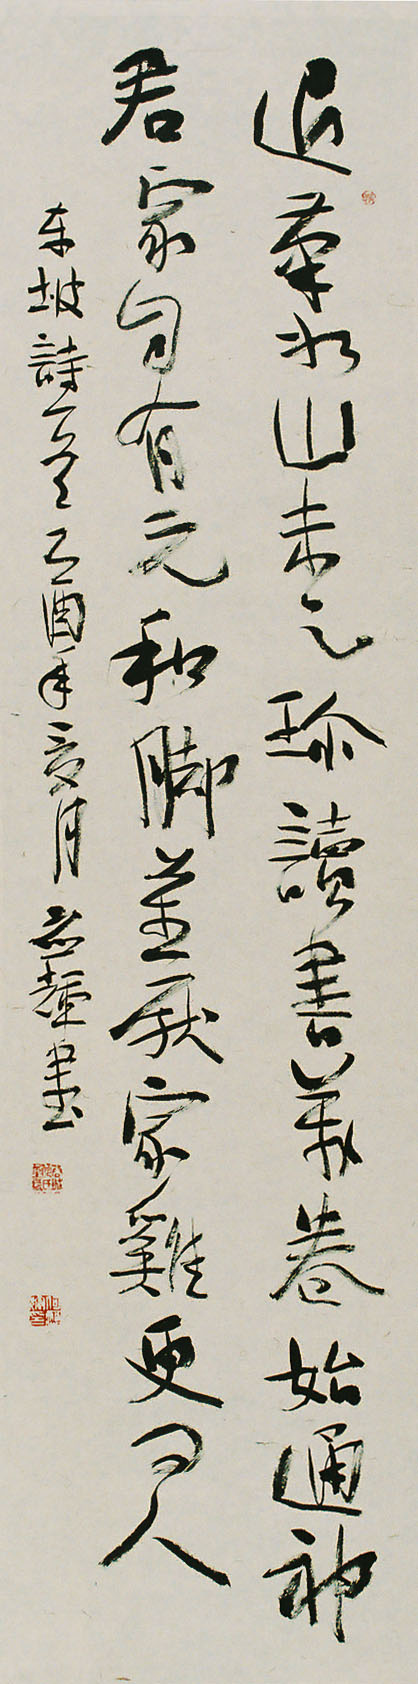 退筆如山未足珍讀書萬卷始通神
君家自有元和脚莫厭家雞更問人
东坡詩一首乙酉年月書